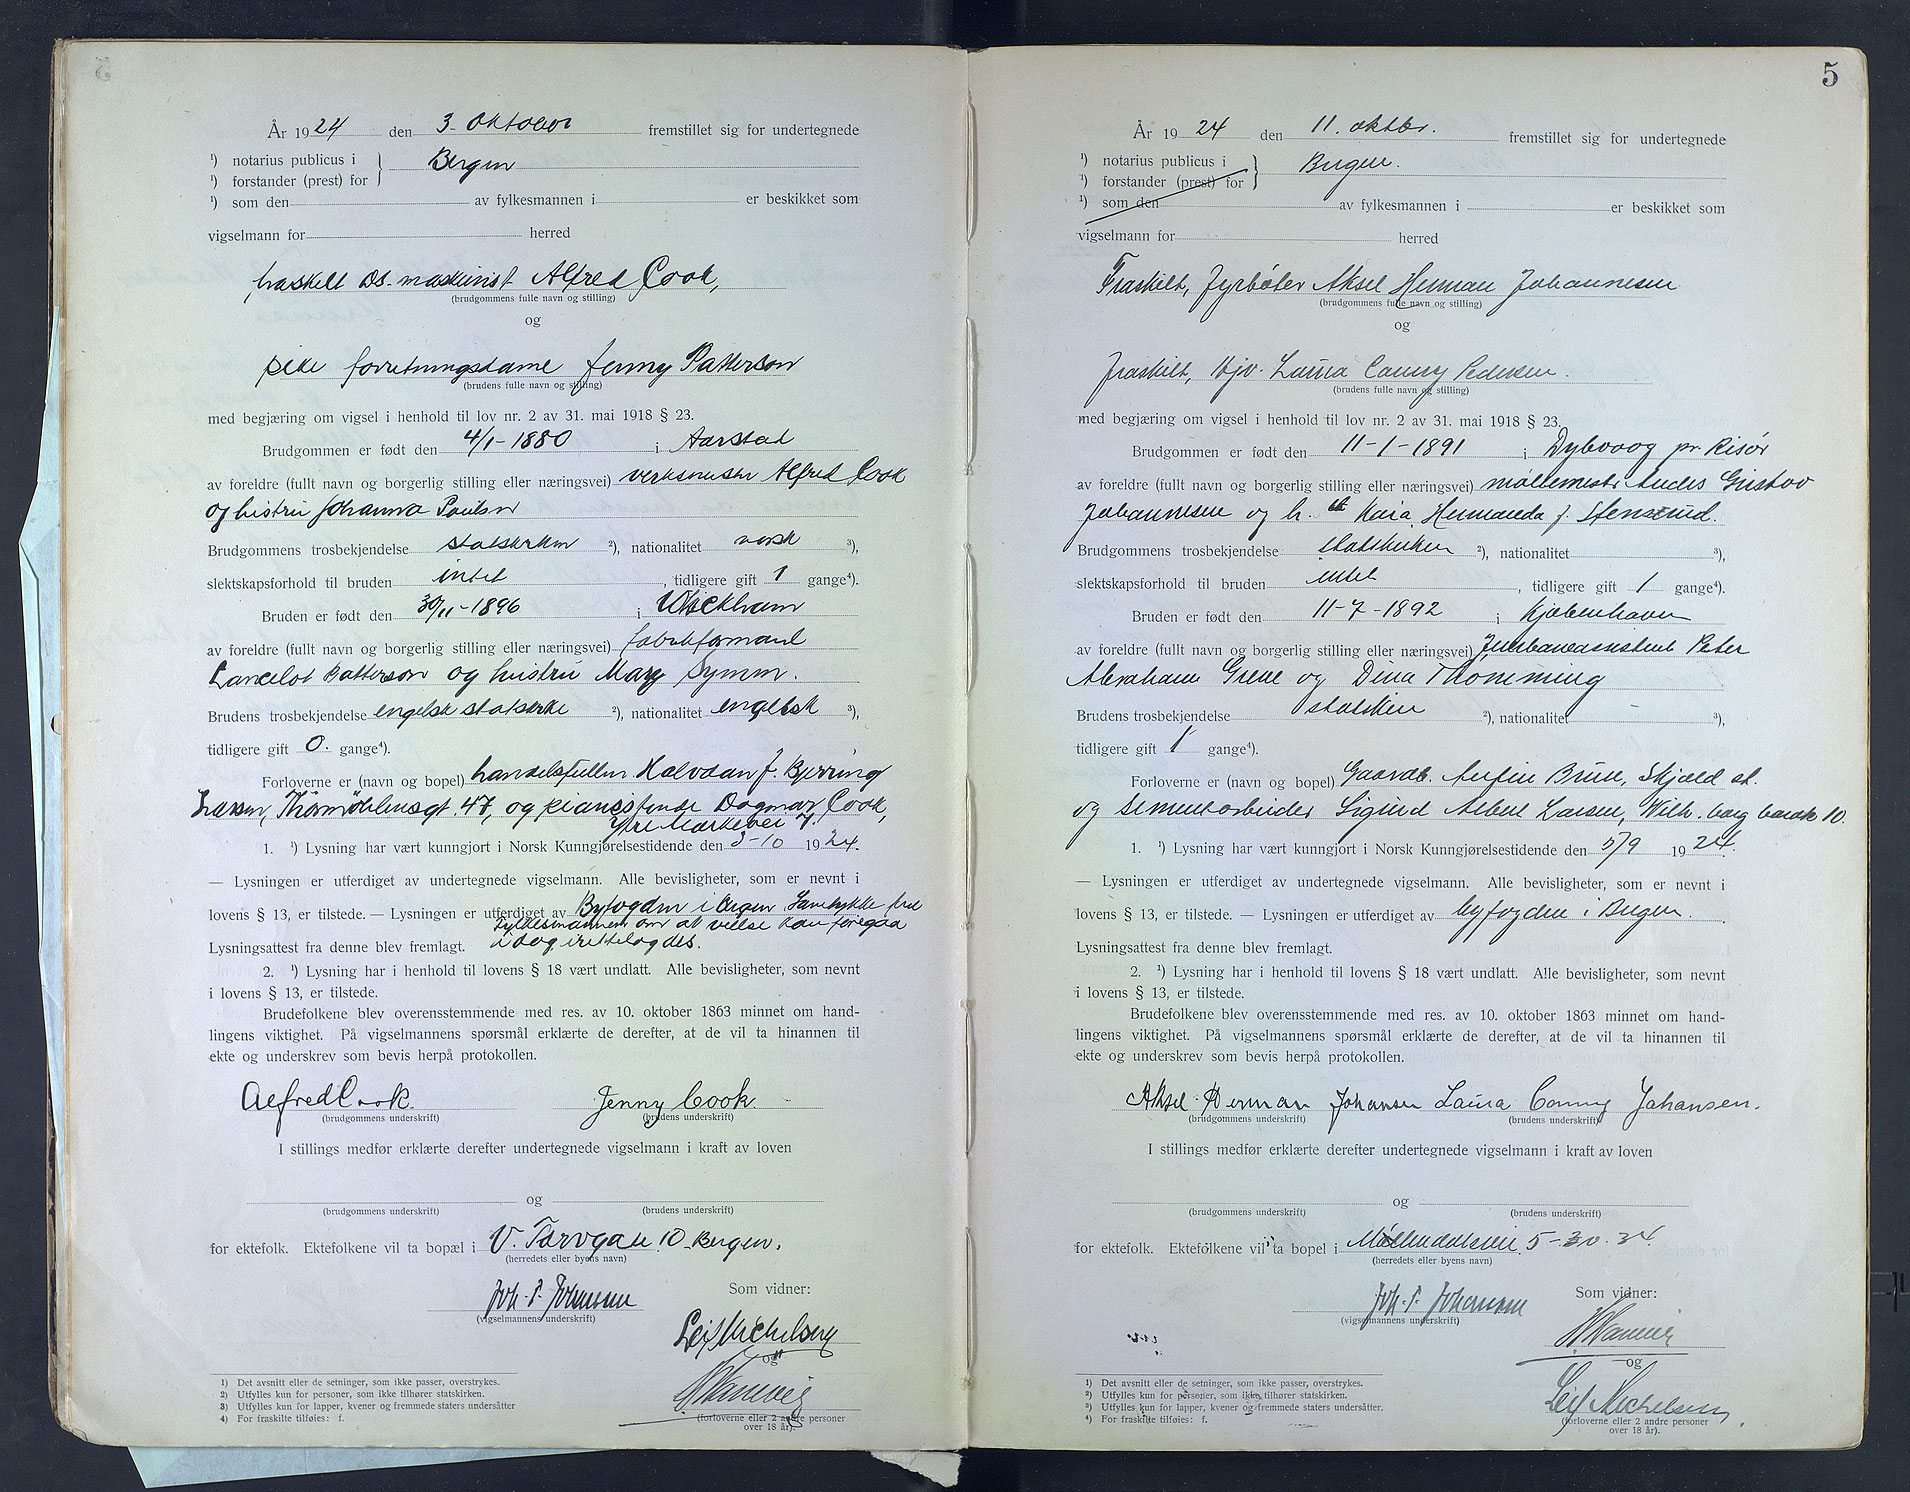 År 1924 den 3. Oktober fremstillet sig for undertegnede
¹) notarius publicus i
¹) forstander (prest) for } Bergen
¹) som den av fylkesmannen i er beskikket som
vigselmann for herred
fraskilt DS. maskinist Alfred Cook,
(brudgommens fulle navn og stilling)
og
pike forretningsdame Jenny Patterson
(brudens fulle navn og stilling)
med begjæring om vigsel i henhold til lov nr. 2 av 31. mai 1918 § 23.
Brudgommen er født den 4/1-1880 i Aarstad
av foreldre (fullt navn og borgerlig stilling eller næringsvei) verksmester Alfred Cook
og hustru Johanna Paulsen
Brudgommens trosbekjendelse statskirken ²), nationalitet norsk ³),
slektskapsforhold til bruden intet, tidligere gift 1 gange⁴).
Bruden er født den 30/11-1896 i Whickham
av foreldre (fullt navn og borgerlig stilling eller næringsvei) fabrikformand
Lancelot Patterson og hustru Mary Symm.
Brudens trosbekjendelse engelsk statskirke ²), nationalitet engelsk ³),
tidligere gift 0. gange⁴).
Forloverne er (navn og bopel) handelsfullm. Halvdan J. Bjerring
Larsen, Thormøhlensgt. 47, og pianistinde Dagmar Cook,
Ytre Markevei 7.
1. ¹) Lysning har vært kunngjort i Norsk Kunngjørelsestidende den 3-10 1924.
— Lysningen er utferdiget av undertegnede vigselmann. Alle bevisligheter, som er nevnt i
lovens § 13, er tilstede. — Lysningen er utferdiget av Byfogden i Bergen Samtykke fra
Fylkesmannen om at vielse kan foregaa
Lysningsattest fra denne blev fremlagt. idag irettelagdes.
2. ¹) Lysning har i henhold til lovens § 18 vært undlatt. Alle bevisligheter, som nevnt
i lovens § 13, er tilstede.
Brudefolkene blev overensstemmende med res. av 10. oktober 1863 minnet om hand-
lingens viktighet. På vigselmannens spørsmål erklærte de derefter, at de vil ta hinannen til
ekte og underskrev som bevis herpå protokollen.
Alfred Cook. Jenny Cook
(brudgommens underskrift) (brudens underskrift)
I stillings medfør erklærte derefter undertegnede vigselmann i kraft av loven
og
(brudgommens underskrift) (brudens underskrift)
for ektefolk. Ektefolkene vil ta bopæl i V. Torvgate 10 Bergen.
(herredets eller byens navn)
Joh. P. Johansen Som vidner:
(vigselmannens underskrift)
Leif Michelsen
og
(forloverne eller 2 andre personer
over 18 år).
1) Det avsnitt eller de setninger, som ikke passer, overstrykes.
2) Utfylles kun for personer, som ikke tilhører statskirken.
3) Utfylles kun for lapper, kvener og fremmede staters undersåtter
4) For fraskilte tilføies: f.
5
År 1924 den 11. oktbr. fremstillet sig for undertegnede
¹) notarius publicus i
¹) forstander (prest) for } Bergen.
¹) som den av fylkesmannen i er beskikket som
vigselmann for herred
Fraskilt, fyrbøter Aksel Herman Johannesen
(brudgommens fulle navn og stilling)
og
fraskilt, Hjv. Laura Conny Pedersen.
(brudens fulle navn og stilling)
med begjæring om vigsel i henhold til lov nr. 2 av 31. mai 1918 § 23.
Brudgommen er født den 11-1-1891 i Dybvaag pr. Risør
av foreldre (fullt navn og borgerlig stilling eller næringsvei) møllemester Anders Gustav
Johannesen og h. Kaia Hermanda f. Stensrud.
Brudgommens trosbekjendelse statskirken ²), nationalitet ³),
slektskapsforhold til bruden intet, tidligere gift 1 gange⁴).
Bruden er født den 11-7-1892 i Kjøbenhavn
av foreldre (fullt navn og borgerlig stilling eller næringsvei) Jernbaneassistent Peter
Abraham Greve og Dina Thomming
Brudens trosbekjendelse statskirken ²), nationalitet ³),
tidligere gift 1 gange⁴).
Forloverne er (navn og bopel) Gaardb. Anfin Bruse, Skjold st.
og sementarbeider Sigurd Albert Larsen, Wilh. barak 10.
1. ¹) Lysning har vært kunngjort i Norsk Kunngjørelsestidende den 5/9 1924.
— Lysningen er utferdiget av undertegnede vigselmann. Alle bevisligheter, som er nevnt i
lovens § 13, er tilstede. — Lysningen er utferdiget av byfogden i Bergen.
Lysningsattest fra denne blev fremlagt.
2. ¹) Lysning har i henhold til lovens § 18 vært undlatt. Alle bevisligheter, som nevnt
i lovens § 13, er tilstede.
Brudefolkene blev overensstemmende med res. av 10. oktober 1863 minnet om hand-
lingens viktighet. På vigselmannens spørsmål erklærte de derefter, at de vil ta hinannen til
ekte og underskrev som bevis herpå protokollen.
Aksel Herman Johansen Laura Conny Johansen.
(brudgommens underskrift) (brudens underskrift)
I stillings medfør erklærte derefter undertegnede vigselmann i kraft av loven
og
(brudgommens underskrift) (brudens underskrift)
for ektefolk. Ektefolkene vil ta bopel i Møllendalsvei 5
(herredets eller byens navn)
Joh. P. Johansen Som vidner:
(vigselmannens underskrift)
og
Leif Michelsen
(forloverne eller 2 andre personer
over 18 år).
1) Det avsnitt eller de setninger, som ikke passer, overstrykes.
2) Utfylles kun for personer, som ikke tilhører statskirken.
3) Utfylles kun for lapper, kvener og fremmede staters undersåtter.
4) For fraskilte tilføies: f.